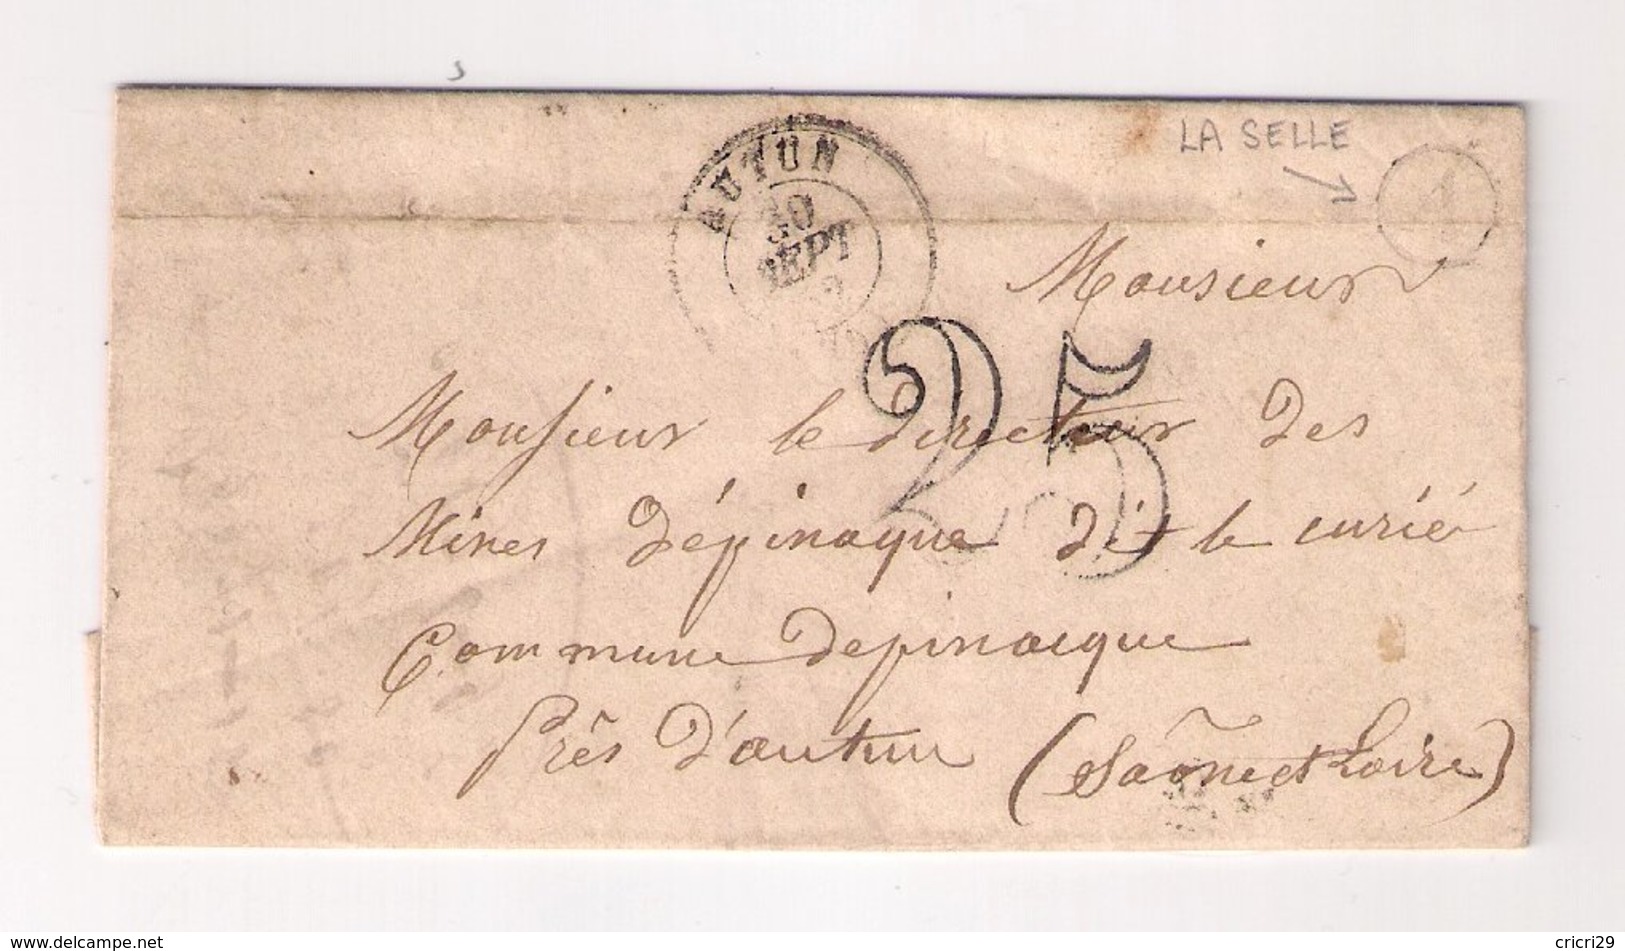 LA SELLE
AUTUN
SEPT
Monsieur
25
Monsieur le directeur des
Mines d'épinaque dit le curié
Commune depinacque
Près d'autun (Saône et Loire)
www.delcampe.net
cricri29